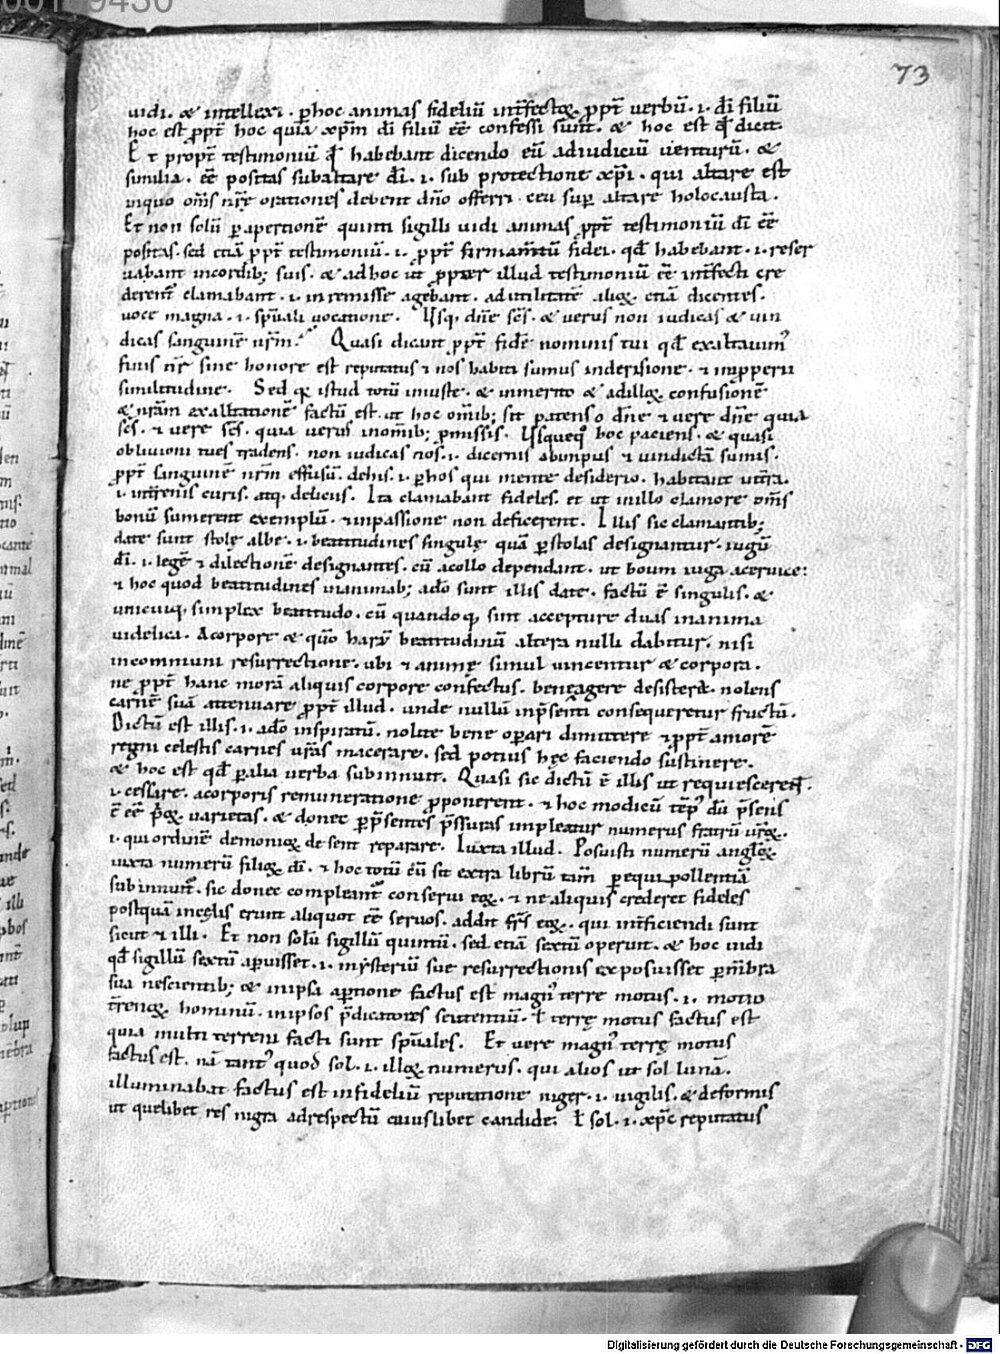 73
uidi. & intellexi. p hoc animas fideliū int̄fectoꝝ. ꝓpt̄ verbū. i. dī filiū
hoc est ꝓpt̄ hoc quia xp̄m dī filiū eē confessi sunt. & hoc est qđ dicit.
Et propt̄ testimoniū qđ habebant dicendo eū ad iudiciū uenturū. &
similia. eē positas sub altare dī. i. sub protectione xp̄i. qui altare est
in quo om̄s nr̄e orationes debent dn̄o offerri. ceu sup altare holocausta.
Et non solū p apertionē quinti sigilli uidi animas ꝓpt̄ testimoniū dī eē
positas. sed etiā ꝓpt̄ testimoniū. i. ꝓpt̄ firmam̄tū fidei. qđ habebant. i. reser
uabant in cordib; suis. & ad hoc ut ꝓpter illud testimoniū eē int̄fecti cre
derent̄ clamabant. i. in se agebant. ad utilitatē alioꝝ. etiā dicentes.
uoce magna. i. sp̄uali uocatione. Usq; dn̄e sc̄s. & uerus non iudicas & uin
dicas sanguinē nr̄m. Quasi dicunt ꝓpt̄ fidē nominis tui qđ exaltauim᷒
finis nr̄ sine honore est reputatus ⁊ nos habiti sumus in derisione. ⁊ improperii
similitudine. Sed qꝫ istud totū iniuste. & inmerito & ad illoꝝ confusionē
& nr̄am exaltationē factū est. ut hoc om̄ib; sit patens o dn̄e ⁊ uere dn̄e quia
sc̄s. ⁊ uere sc̄s. quia uerus in om̄ib; ꝓmissis. Usquequo hoc paciens. & quasi
obliuioni tues tradens. non iudicas nos. i. dicernis ab impus ⁊ uindictā sumis.
ꝓpt̄ sanguinē nr̄m effusū. de his. i. p hos qui mente desiderio. habitant in t̄ra.
i. in t̄renis curis. atq; deliciis. Ita clamabant fideles. et ut in illo clamore om̄s
bonū sumerent exemplū. ⁊ in passione non deficerent. Illis sic clamantib;
date sunt stolę albe. i. beatitudines singulę quā p stolas designantur. iugū
dī. i. legē ⁊ dilectionē designantes. cū a collo dependant. ut boum iuga a ceruice:
⁊ hoc quod beatitudines in animab; adō sunt illis date. factū ē singulis. &
unicuiq; simplex beatitudo. cū quandoq; sint accepture duas in anima
uidelicꝫ. A corpore & quō harū beatitudinū altera nulli dabitur. nisi
in communi resurrectione. ubi ⁊ animę simul uincentur & corpora.
ne ꝓpt̄ hanc morā aliquis corpore confectus. bene agere desisteret. nolens
carnē suā attenuare ꝓpt̄ illud. unde nullū in p̄senti consequeretur fructū.
Dictū est illis. i. adō inspiratū. nolite bene oꝑari dimittere ⁊ ꝓpt̄ amorē
regni celestis carnes ur̄as macerare. sed potius hęc faciendo sustinere.
& hoc est qđ p alia uerba subinnuit. Quasi sic dictū ē illis ut requiescerent.
i. cessare. a corporis remuneratione ꝓponerent. ⁊ hoc modicū temp᷒ dū p̄sens
ē eē uarietas. & donec p p̄sentes p̄ssuras impleatur numerus fratrū ur̄oꝝ.
i. qui ordinē demonioꝝ debent reparare. Iuxta illud. Posuisti numerū angloꝝ
iuxta numerū filioꝝ dī. ⁊ hoc totū cū sit extra librū tam̄ p equipollentiā
subinnuit̄. sic donec compleant̄ conserui eoꝝ. ⁊ ne aliquis crederet fideles
postquā in cęlis erunt aliquot eē seruos. addit frs̄ eoꝝ. qui int̄ficiendi sunt
sicut ⁊ illi. Et non solū sigillū quintū. sed etiā sextū operuit. & hoc uidi
qđ sigillū sextū apuisset. i. mysteriū sue resurrectionis exposuisset p m̄bra
sua nescientib; & in ipsa aptione factus est magn᷒ terre motus. i. motio
t̄renoꝝ hominū. in ipsos p̄dicatores seuientiū. ł terrę motus factus est
quia multi terreni facti sunt sp̄uales. Et uere magn᷒ terrę motus
factus est. nā tant᷒ quod sol. i. illoꝝ numerus. qui alios ut sol lunā.
illuminabat factus est in fideliū reputatione niger. i. uigilis. & deformis
ut quelibet res nigra ad respectū cuiuslibet candide: ł sol. i. xp̄c reputatus
Digitalisierung gefördert durch die Deutsche Forschungsgemeinschaft - DFG